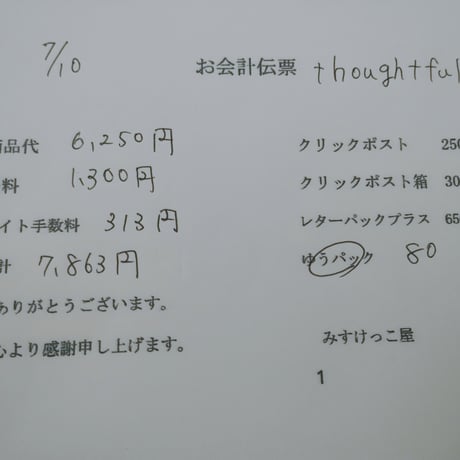 7/10
お会計伝票 thoughtful
商品代 6,250円
料 1,300円
イト手数料 313円
計 7,863円
ありがとうございます。
心より感謝申し上げます。
クリックポスト 250
クリックポスト箱 30
レターパックプラス 650
ゆうパック 80
みすけっこ屋
1